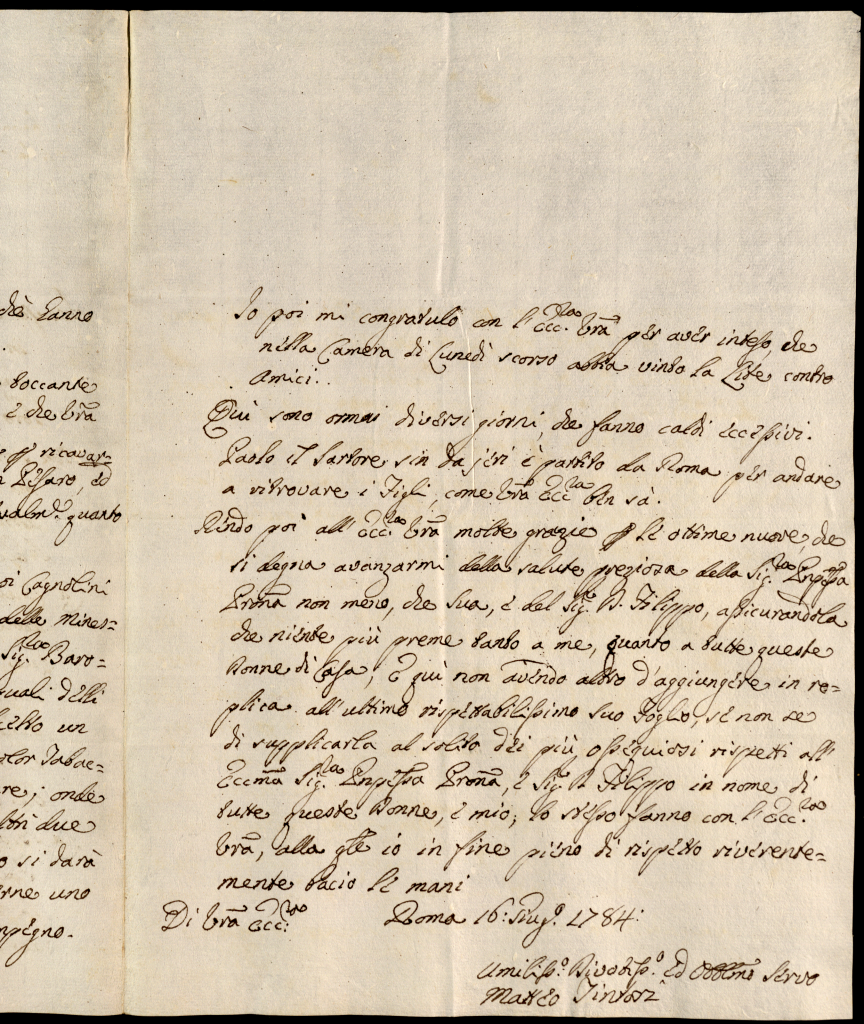 chè hanno
toccante
è che Vrã
ricavar-
Pesaro, ed
quanto
Cagnolini
delle Mines=
Sig.ra Baro=
quali delli
un
Tabac=
re; onde
altri due
o si darà
erne uno
mpegno.
Io poi mi congratulo con l'Ecc.za Vrã per aver inteso, che
nella Camera di Lunedì scorso abbia vinto la Lite contro
Amici..
Quì sono ormai diversi giorni, che fanno caldi eccessivi.
Paolo il Sartore sin da jeri è partito da Roma per andare
a ritrovare i Figli, come Vrã Ecc.za ben sà.
Rendo poi all'Ecc.za Vrã molte grazie p le ottime nuove, che
si degna avanzarmi della salute preziosa della Sig.ra Pnpessa
Prõna non meno, che sua, e del Sig.r D. Filippo, assicurandola
che niente più preme tanto a me, quanto a tutte queste
Donne di Casa; E quì non avendo altro d'aggiungere in re=
plica all'ultimo rispettabilissimo suo Foglio, se non se
di supplicarla al solito dei più ossequiosi rispetti all'
Eccmã Sig.ra Pnpessa Prõna, e Sig.r D. Filippo in nome di
tutte queste Donne, e mio; lo stesso fanno con l'Ecc.za
Vrã, alla qle io in fine pieno di rispetto riverente=
mente bacio le mani
Di Vrã Ecc.za Roma 16: Giug.o 1784:
Umiliss.o Divotiss.o ed Obblmo Servo
Matteo Tintorj